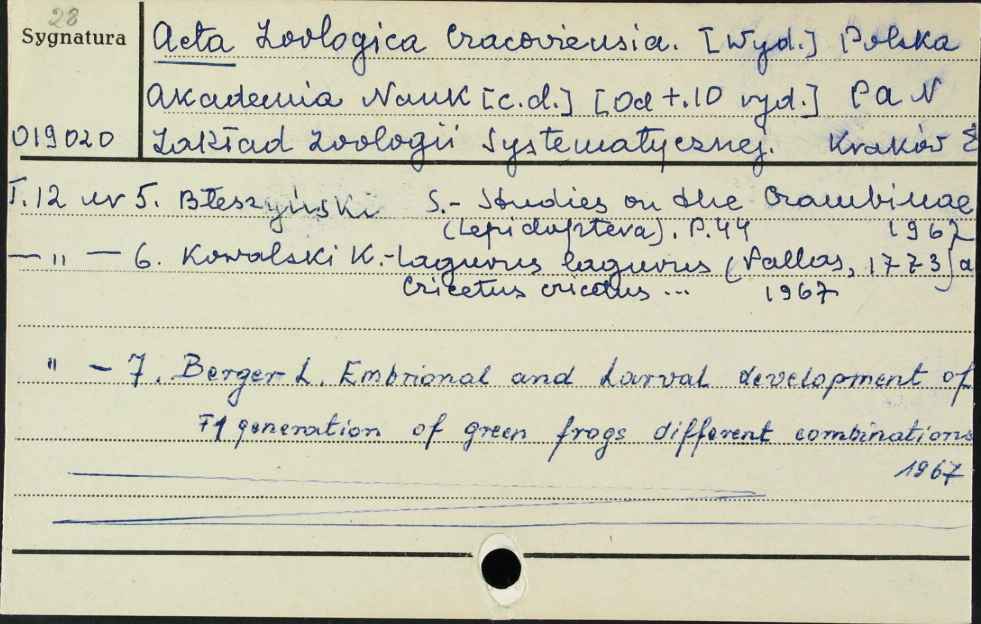 28
Sygnatura
Acta Zoologica Cracoviensia. [Wyd.] Polska
Akademia Nauk [c.d.] [Od t.10 wyd.] PaN
019020 Zakład Zoologii Systematycznej. Kraków
T.12 nr 5. Błeszyński S.- Studies on the Crambinae
(Lepidoptera). P.44 1967
— " — 6. Kowalski K.- Lagurus lagurus (Pallas, 1773) a
Cricetus cricetus ... 1967
" — 7. Berger L. Embrional and Larval development of
F1 generation of green frogs different combinations
1967